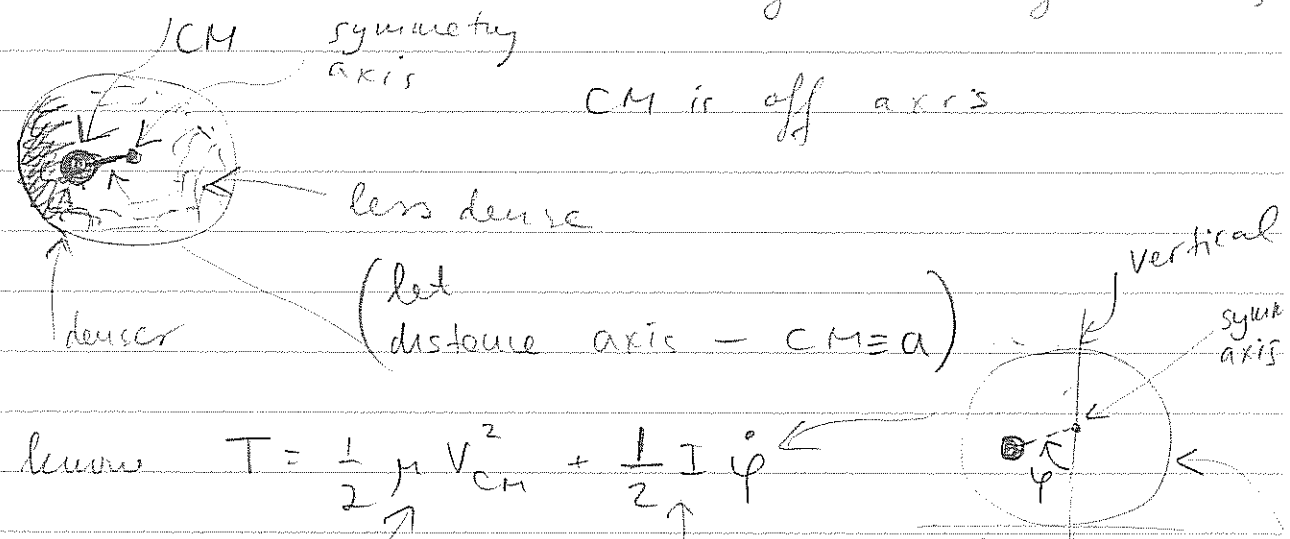 CM symmetry
axis
CM is off axis
less dense
vertical
denser
(let
distance axis - CM ≡ a)
symm
axis
know T = 1/2 μ V_CM^2 + 1/2 I φ̇
φ